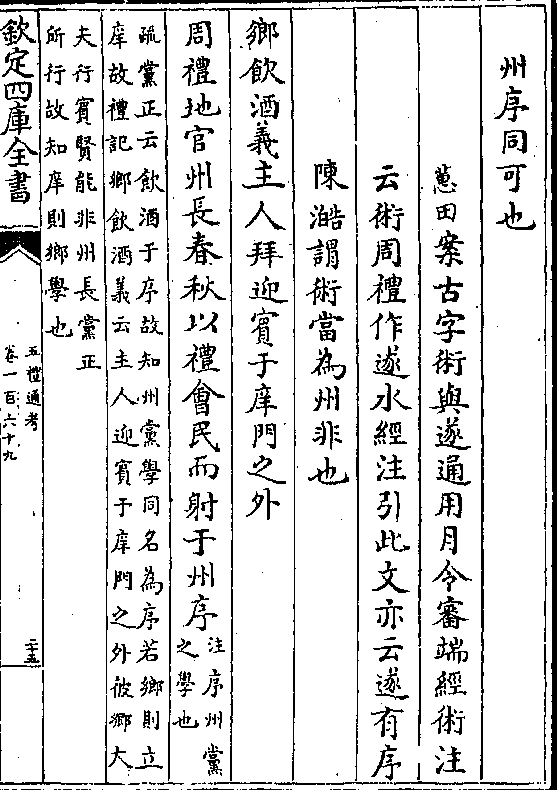 州序同可也
蕙田案古字術與遂通用月令審端經術注
云術周禮作遂水經注引此文亦云遂有序
陳澔謂術當為州非也
鄉飲酒義主人拜迎賓于庠門之外
周禮地官州長春秋以禮會民而射于州序
注序州黨
之學也
疏黨正云飲酒于序故知州黨學同名為序若鄉則立
庠故禮記鄉飲酒義云主人迎賓于庠門之外彼鄉大
夫行賓賢能非州長黨正
所行故知庠則鄉學也
欽定四庫全書
五禮通考
卷一百六十九
二十五